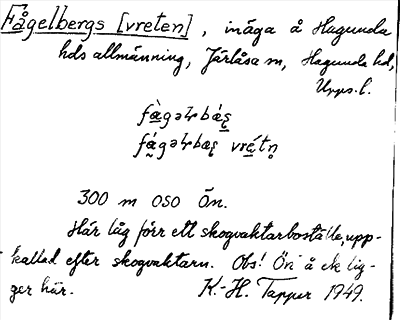 Fågelbergs [vreten], inäga å Hagunda
hds allmänning, Järlåsa sn, Hagunda hd,
Upps. l.
fàgəɫbáʂ
fágəɫbæʂ vrétn̥
300 m OSO Ön.
Här låg förr ett skogvaktarboställe, upp-
kallad efter skogvaktarn. Obs! Ön å ek lig-
ger här. K.-H. Tapper 1949.